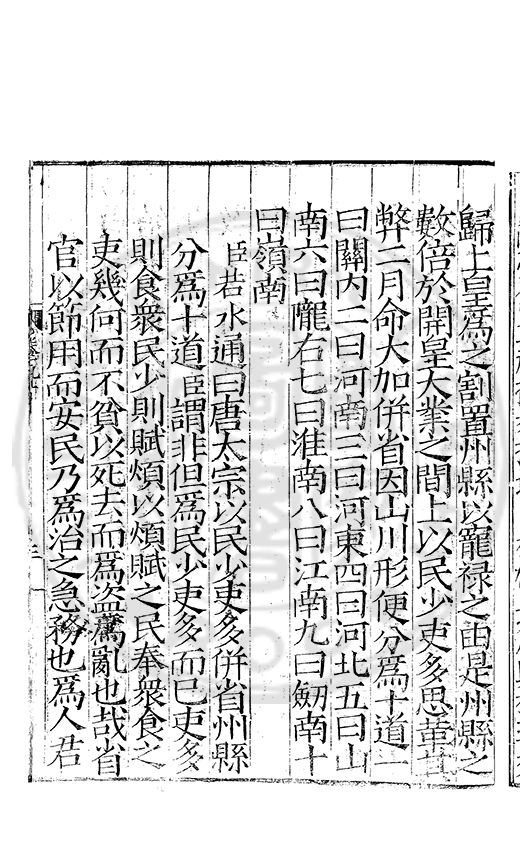 歸上皇為之割置州縣以寵祿之由是州縣之
數倍於開皇大業之間上以民少吏多思革其
弊二月命大加併省因山川形便分為十道一
曰關內二曰河南三曰河東四曰河北五曰山
南六曰隴右七曰淮南八曰江南九曰劒南十
曰嶺南
臣若水通曰唐太宗以民少吏多併省州縣
分為十道臣謂非但為民少吏多而已吏多
則食衆民少則賦煩以煩賦之民奉衆食之
吏幾何而不貧以死去而為盜爲亂也哉省
官以節用而安民乃為治之急務也為人君